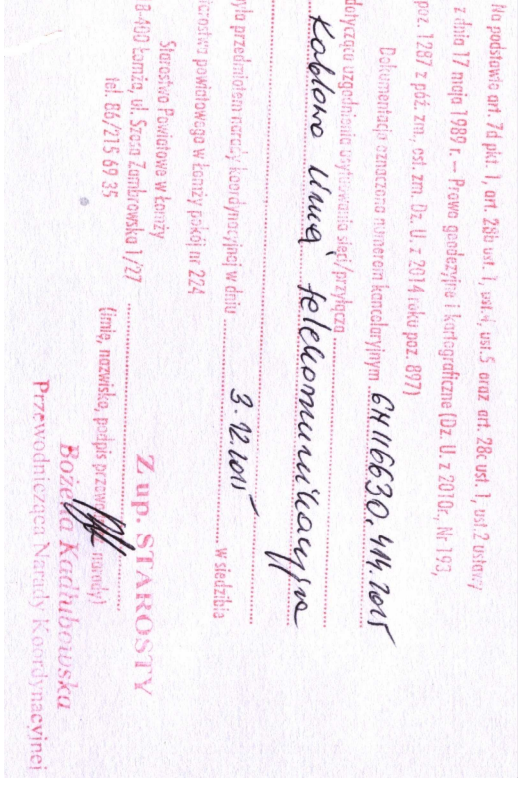 Na podstawie art. 7d pkt. 1, art. 28b ust. 1, ust. 4, ust. 5 oraz art. 28c ust. 1, ust 2 ustawy
z dnia 17 maja 1989 r. – Prawo geodezyjne i kartograficzne (Dz. U. z 2010r., Nr 193,
poz. 1287 z póź. zm., ost. zm. Dz. U. z 2014 roku poz. 897)
Dokumentacja oznaczona numerem kancelaryjnym 6630.414.2015
dotycząca uzgodnienia sieci/przyłącza
Kablowa linia telekomunikacyjna
była przedmiotem narady koordynacyjnej w dniu 3.12.2015 w siedzibie
powiatowego w Łomży pokój nr 224
Starostwo Powiatowe w Łomży
8-400 Łomża, ul. Szosa Zambrowska 1/27
tel. 86/215 69 35
Z up. STAROSTY
(imię, nazwisko, podpis narady)
Bożena Kadłubowska
Przewodnicząca Narady Koordynacyjnej